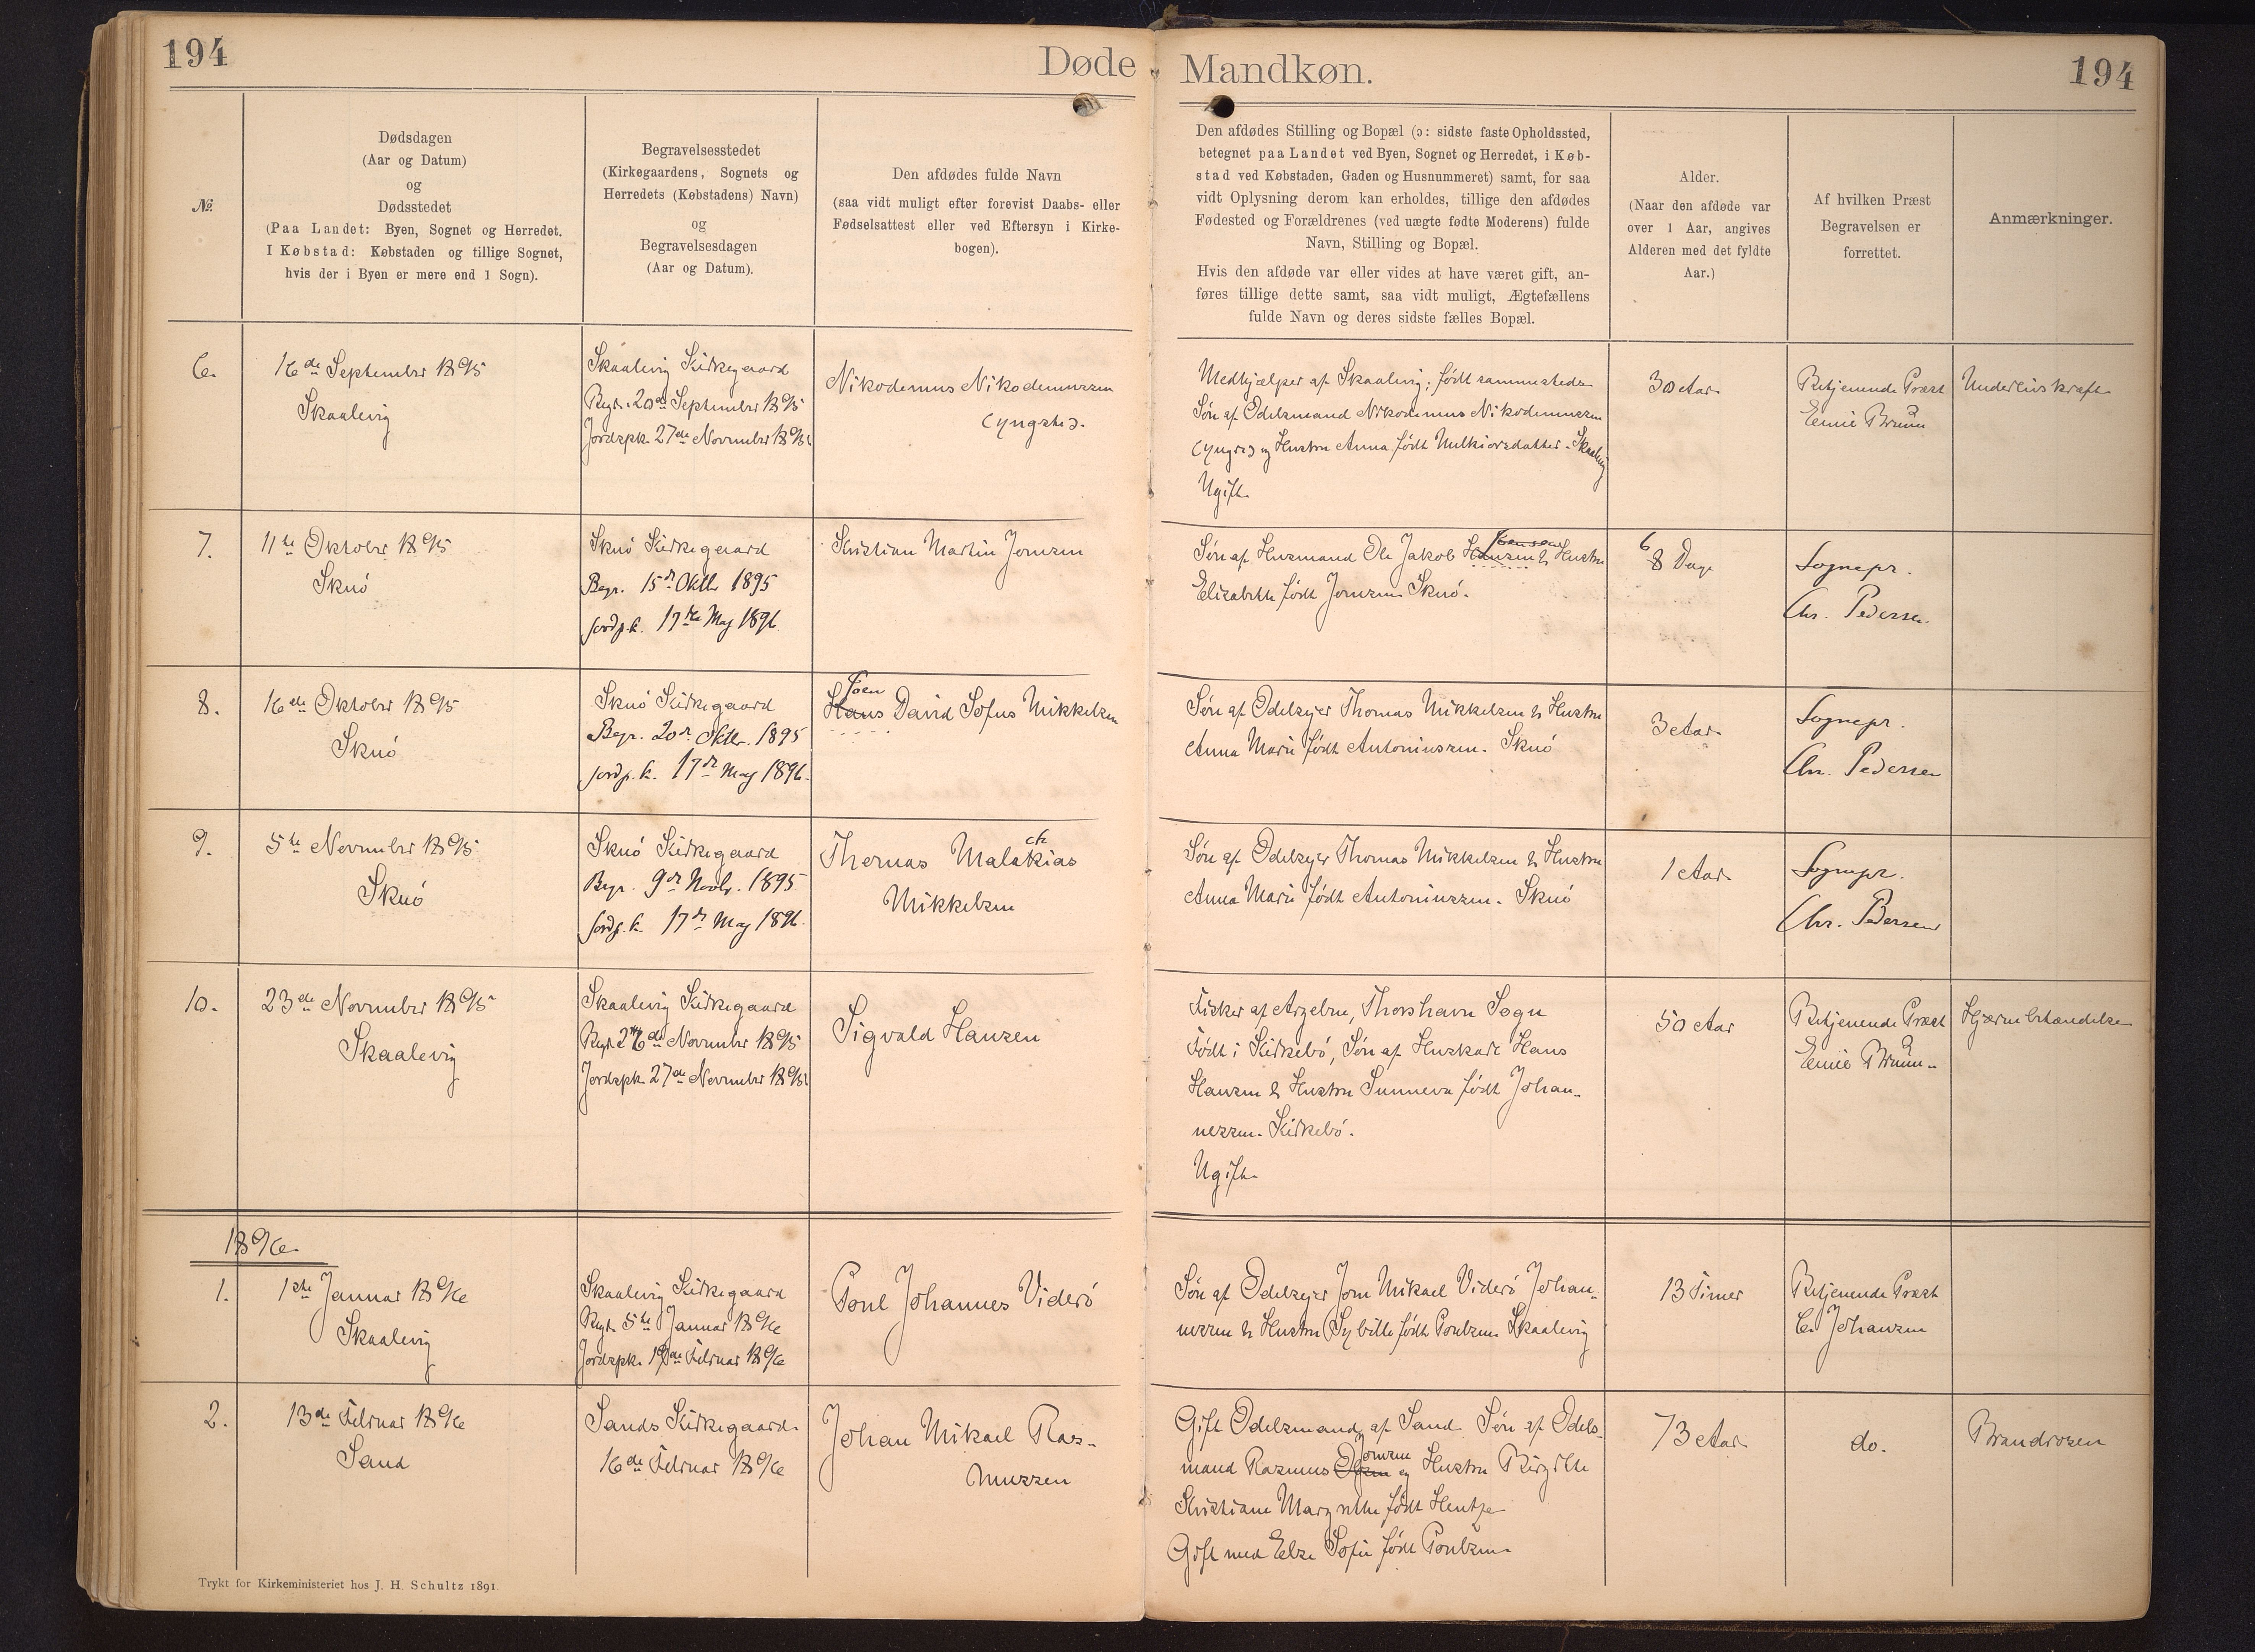 194
Døde
Mandkøn.
194
№.
Dødsdagen
(Aar og Datum)
og
Dødsstedet
(Paa Landet: Byen, Sognet og Herredet.
I Købstad: Købstaden og tillige Sognet,
hvis der i Byen er mere end 1 Sogn).
Begravelsesstedet
(Kirkegaardens, Sognets og
Herredets (Købstadens) Navn)
og
Begravelsesdagen
(Aar og Datum).
Den afdødes fulde Navn
(saa vidt muligt efter forevist Daabs- eller
Fødselsattest eller ved Eftersyn i Kirke-
bogen).
Den afdødes Stilling og Bopæl (ɔ: sidste faste Opholdssted,
betegnet paa Landet ved Byen, Sognet og Herredet, i Køb-
stad ved Købstaden, Gaden og Husnummeret) samt, for saa
vidt Oplysning derom kan erholdes, tillige den afdødes
Fødested og Forældrenes (ved uægte fødte Moderens) fulde
Navn, Stilling og Bopæl.
Hvis den afdøde var eller vides at have været gift, an-
føres tillige dette samt, saa vidt muligt, Ægtefællens
fulde Navn og deres sidste fælles Bopæl.
Alder.
(Naar den afdøde var
over 1 Aar, angives
Alderen med det fyldte
Aar.)
Af hvilken Præst
Begravelsen er
forrettet.
Anmærkninger.
6.
16de September 1895
Skaalevig
Skaalevig Kirkegaard
Begr. 20de September 1895
Jordspk. 27de November 1895
Nikodemus Nikodemussen
(yngste).
Medhjælper af Skaalevig, født sammesteds
Søn af Odelsmand Nikodemus Nikodemussen
(yngre) og Hustru Anna født Melkiorsdatter - Skaalevig
Ugift.
30 Aar
Betjenende Præst
Emil Bruun
Underlivskræft
7.
11te Oktober 1895
Skuø
Skuø Kirkegaard
Begr. 15de Oktbr 1895
Jordp.k. 17de Maj 1896.
Kristian Martin Joensen
Søn af Husmand Ole Jakob Hansen & Hustru
Joensen
Elisabeth født Joensen Skuø.
6
8 Dage
Sognepr.
Chr. Pedersen
8.
16de Oktober 1895
Skuø
Skuø Kirkegaard
Begr. 20de Oktbr. 1895
Jordp.k. 17de Maj 1896.
Joen
Hans David Sofus Mikkelsen
Søn af Odelsejer Thomas Mikkelsen & Hustru
Anna Marie født Antoniussen. Skuø
3 Aar
Sognepr.
Chr. Pedersen
9.
5te November 1895
Skuø
Skuø Kirkegaard
Begr. 9de Novbr. 1895
Jordp.k. 17de Maj 1896.
ch
Thomas Malakias
Mikkelsen
Søn af Odelsejer Thomas Mikkelsen & Hustru
Anna Marie født Antoniussen. Skuø
1 Aar
Sognepr.
Chr. Pedersen
10.
23de November 1895
Skaalevig
Skaalevig Kirkegaard
Begr. 26de November 1895
Jordspk. 27de November 1895
Sigvald Hansen
Fisker af Argebru, Thorshavn Sogn
Født i Kirkebø, Søn af Huskarl Hans
Hansen & Hustru Sunneva født Johan-
nessen. Kirkebø.
Ugift
50 Aar
Betjenende Præst
Emil Bruun
Hjærnebetændelse
1896.
1.
1ste Januar 1896
Skaalevig
Skaalevig Kirkegaard
Begr. 5te Januar 1896
Jordspk. Februar 1896
Poul Johannes Viderø
Søn af Odelsejer Joen Mikael Viderø Johan-
nessen & Hustru Sybille født Poulsen. Skaalevig
13 Timer
Betjenende Præst
C. Johansen
2.
13de Februar 1896
Sand
Sands Kirkegaard.
16de Februar 1896
Johan Mikael Ras-
mussen
Gift Odelsmand af Sand. Søn af Odels-
Joensen
mand Rasmus Olsen og Hustru Birgitte
Kristiane Margrethe født Hentze
Gift med Else Sofie født Poulsen.
73 Aar
do.
Brandrosen
Trykt for Kirkeministeriet hos J. H. Schultz 1891.